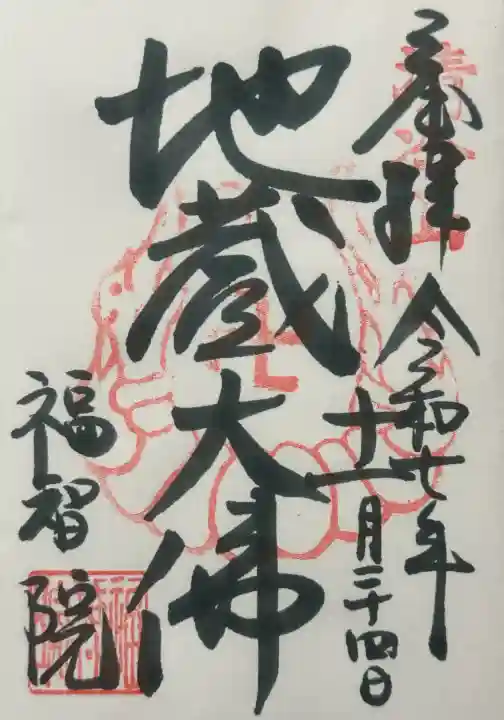 奉拝 令和七年
十一月二十四日
地蔵大佛
福智院